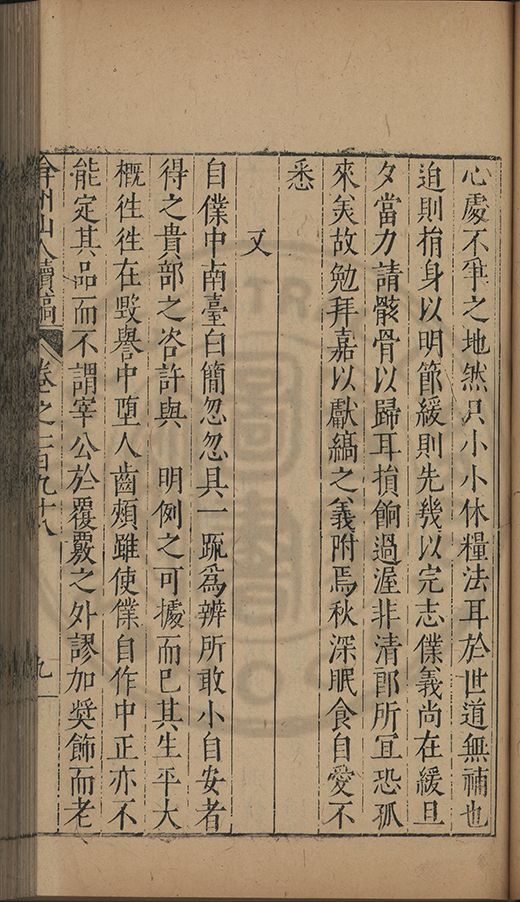 心處不爭之地然只小小休糧法耳於世道無補也
迫則捐身以明節緩則先幾以完志僕義尚在緩旦
夕當力請骸骨以歸耳損餉過渥非清郎所宜恐孤
來美故勉拜嘉以獻縞之義附焉秋深眠食自愛不
悉
又
自僕中南臺白簡忽忽具一疏為辨所敢小自安者
得之貴部之咨許與　明例之可據而已其生平大
概徃徃在毀譽中墮人齒頰雖使僕自作中正亦不
能定其品而不謂宰公於覆覈之外謬加奬飾而老
弇州山人續稿　卷之一百九十八　九